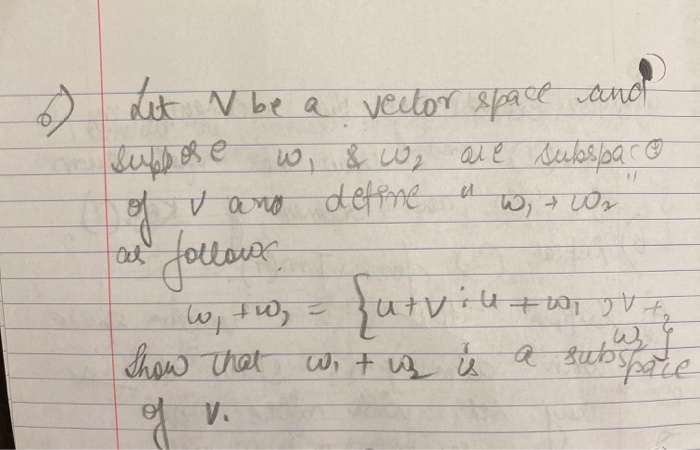 6) Let V be a vector space and
suppose w₁ & w₂ are subspace
of V and define " w₁ + w₂ "
as follows.
w₁ + w₂ = { u + v : u + w₁ , v +
w₂ }
Show that w₁ + w₂ is a subspace
of V.